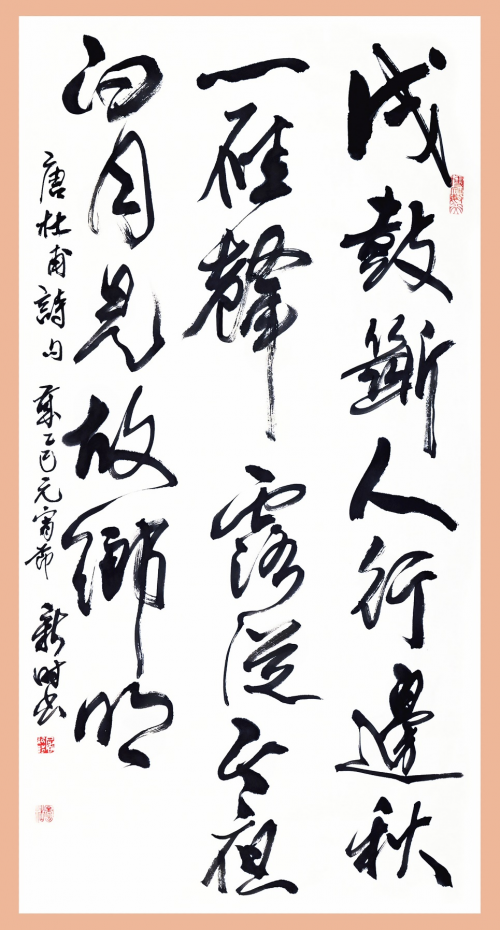 戍鼓斷人行邊秋
一雁聲露從今夜
白月是故鄉明
唐杜甫詩句 歲乙巳元宵節 新时書